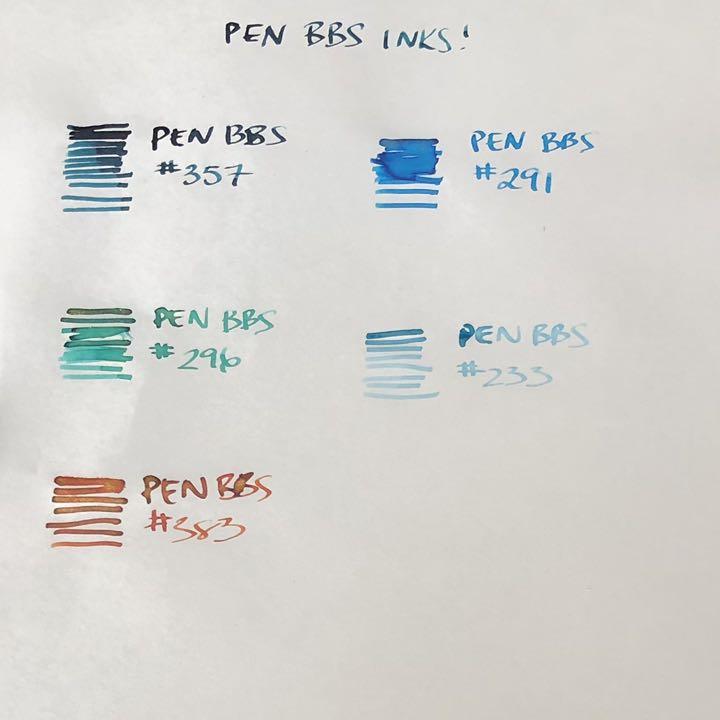 PEN BBS INKS!
PEN BBS
#357
PEN BBS
#291
PEN BBS
#296
PEN BBS
#233
PEN BBS
#383